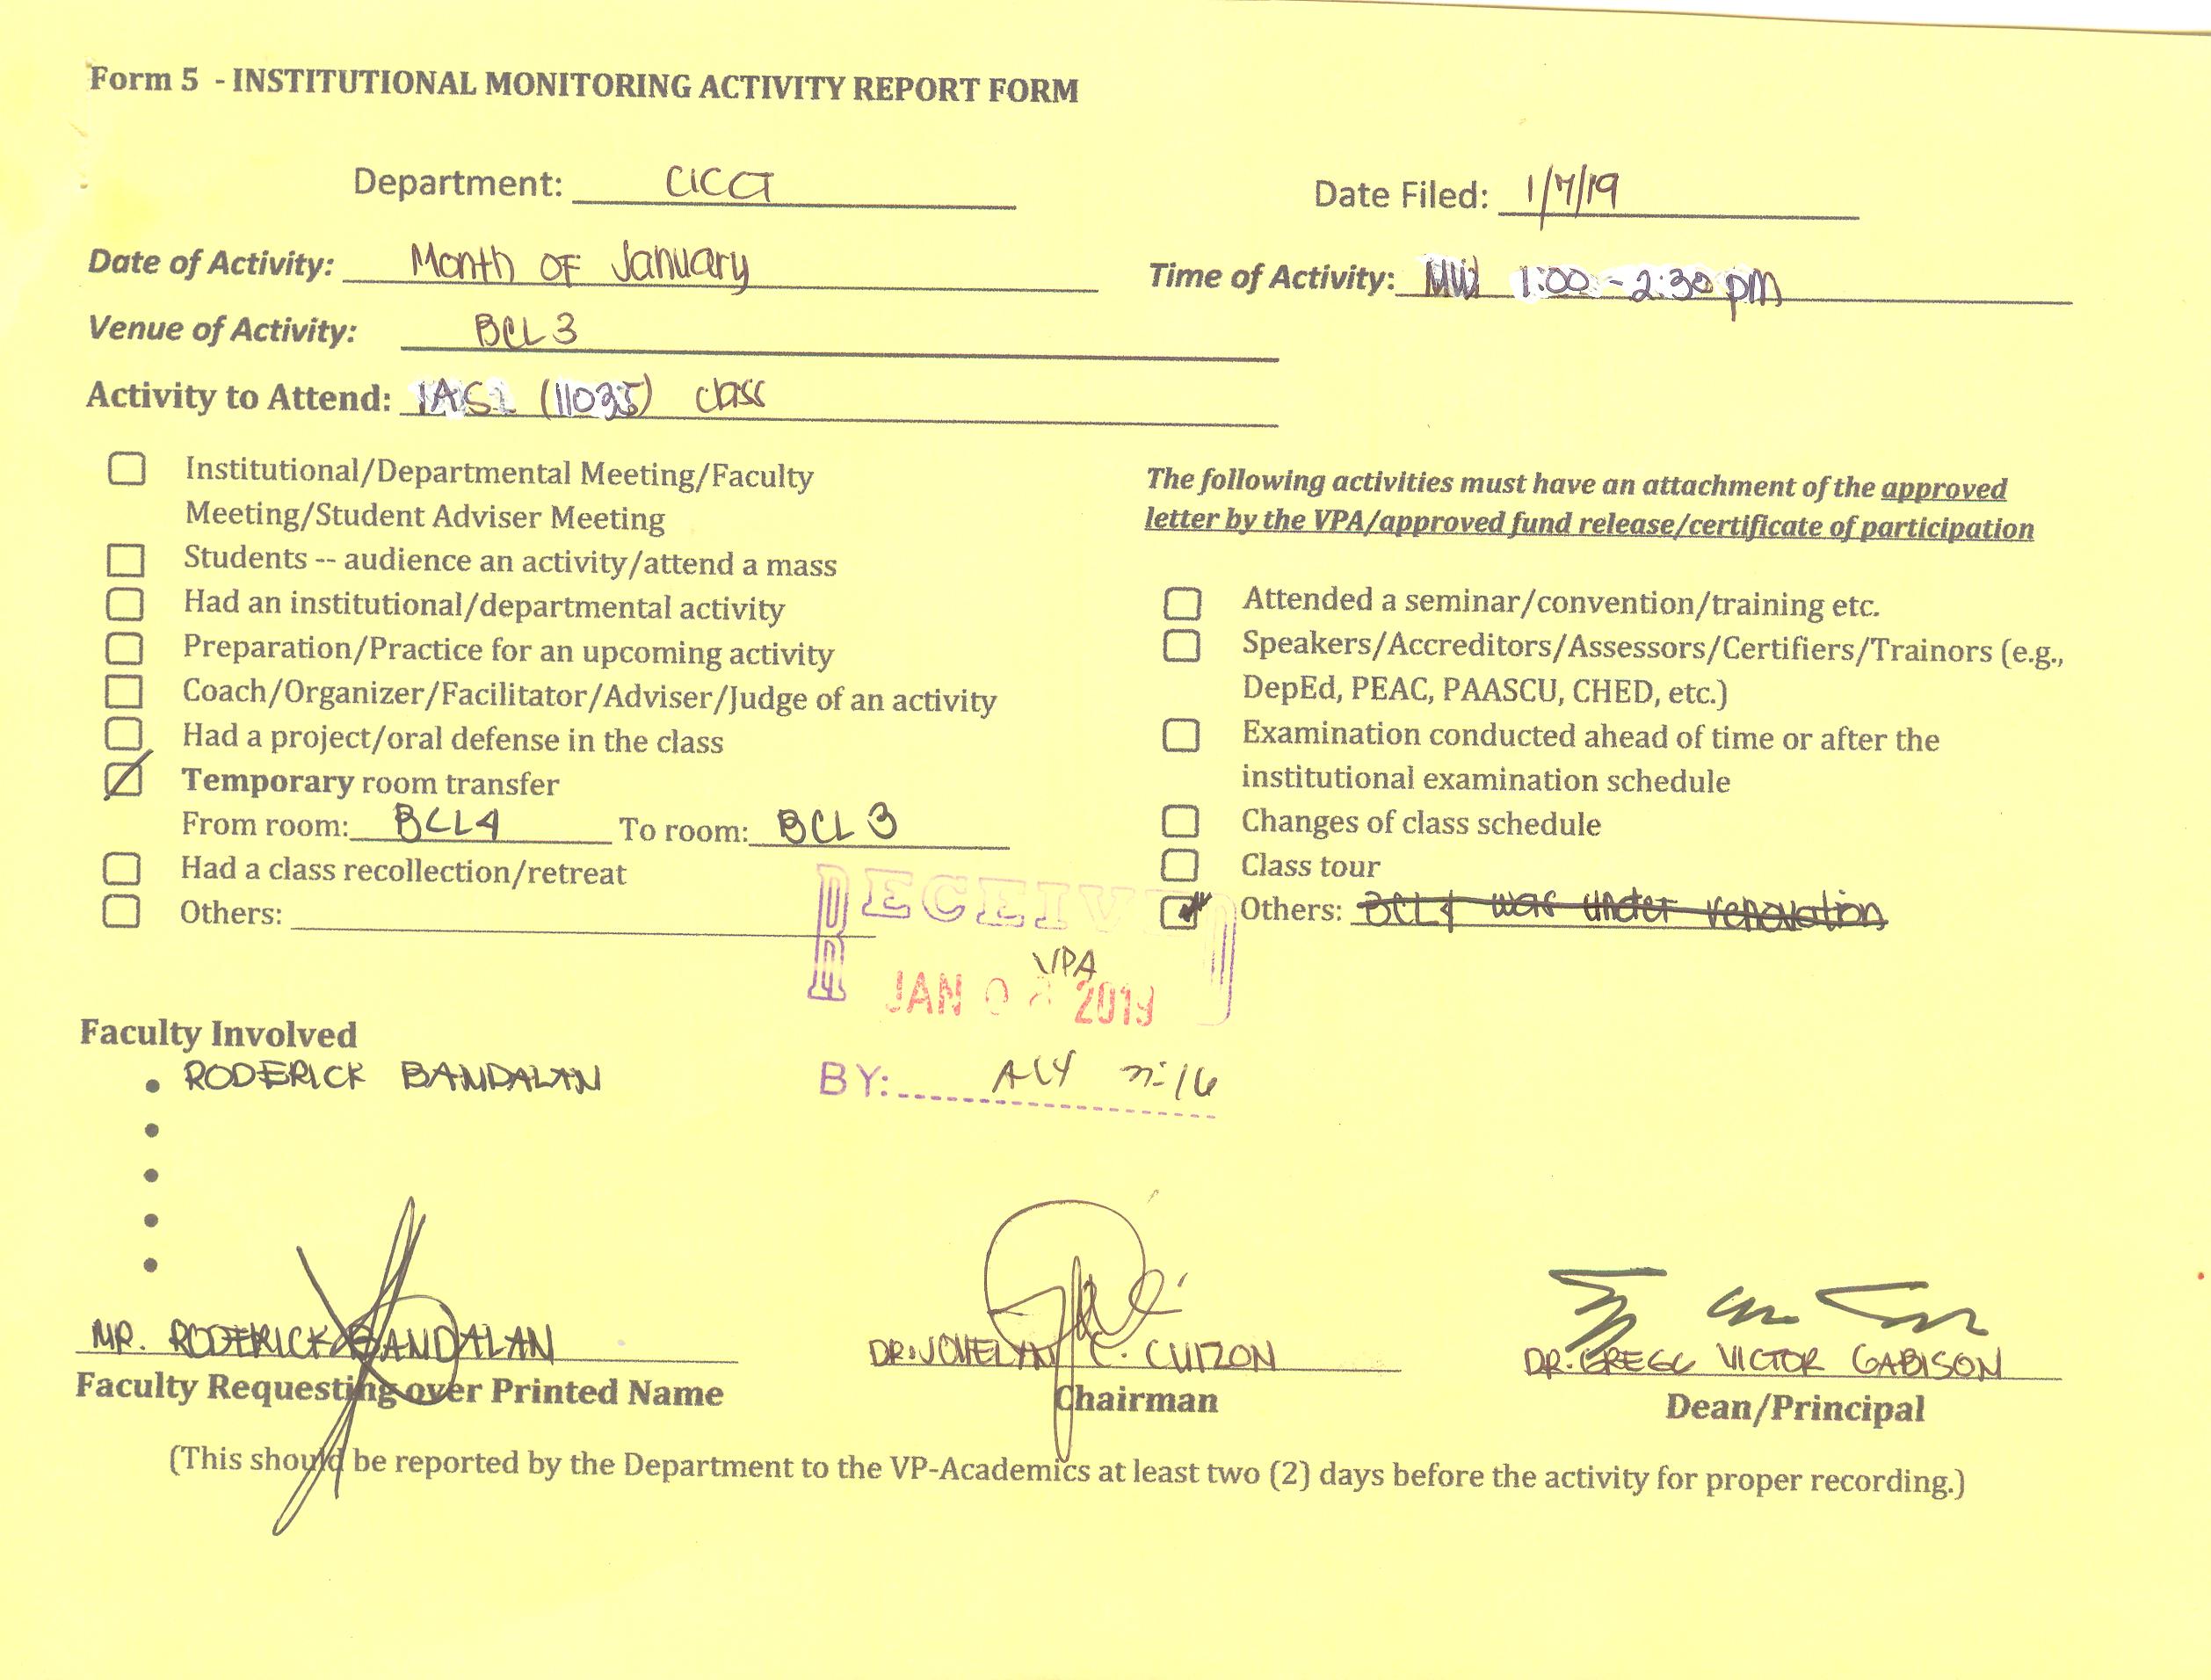 Form 5 - INSTITUTIONAL MONITORING ACTIVITY REPORT FORM
Department: CICCT Date Filed: 1/7/19
Date of Activity: Month OF January Time of Activity: MW 1:00-2:30 pm
Venue of Activity: BCL 3
Activity to Attend: IAS2 (11035) class
Institutional/Departmental Meeting/Faculty
Meeting/Student Adviser Meeting
Students -- audience an activity/attend a mass
Had an institutional/departmental activity
Preparation/Practice for an upcoming activity
Coach/Organizer/Facilitator/Adviser/Judge of an activity
Had a project/oral defense in the class
Temporary room transfer
From room: BCL4 To room: BCL 3
Had a class recollection/retreat
Others:
The following activities must have an attachment of the approved
letter by the VPA/approved fund release/certificate of participation
Attended a seminar/convention/training etc.
Speakers/Accreditors/Assessors/Certifiers/Trainors (e.g.,
DepEd, PEAC, PAASCU, CHED, etc.)
Examination conducted ahead of time or after the
institutional examination schedule
Changes of class schedule
Class tour
Others: BCL4 was under renovation
RECEIVED
VPA
JAN 2019
BY:
Faculty Involved
• RODERICK BANDALAN
•
•
•
•
MR. RODERICK BANDALAN
Faculty Requesting over Printed Name
DR. JOVELYN C. CUIZON
Chairman
DR. GREGG VICTOR GABISON
Dean/Principal
(This should be reported by the Department to the VP-Academics at least two (2) days before the activity for proper recording.)